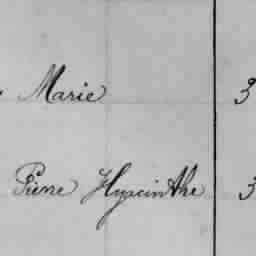 Marie 3
Pierre Hyacinthe 3